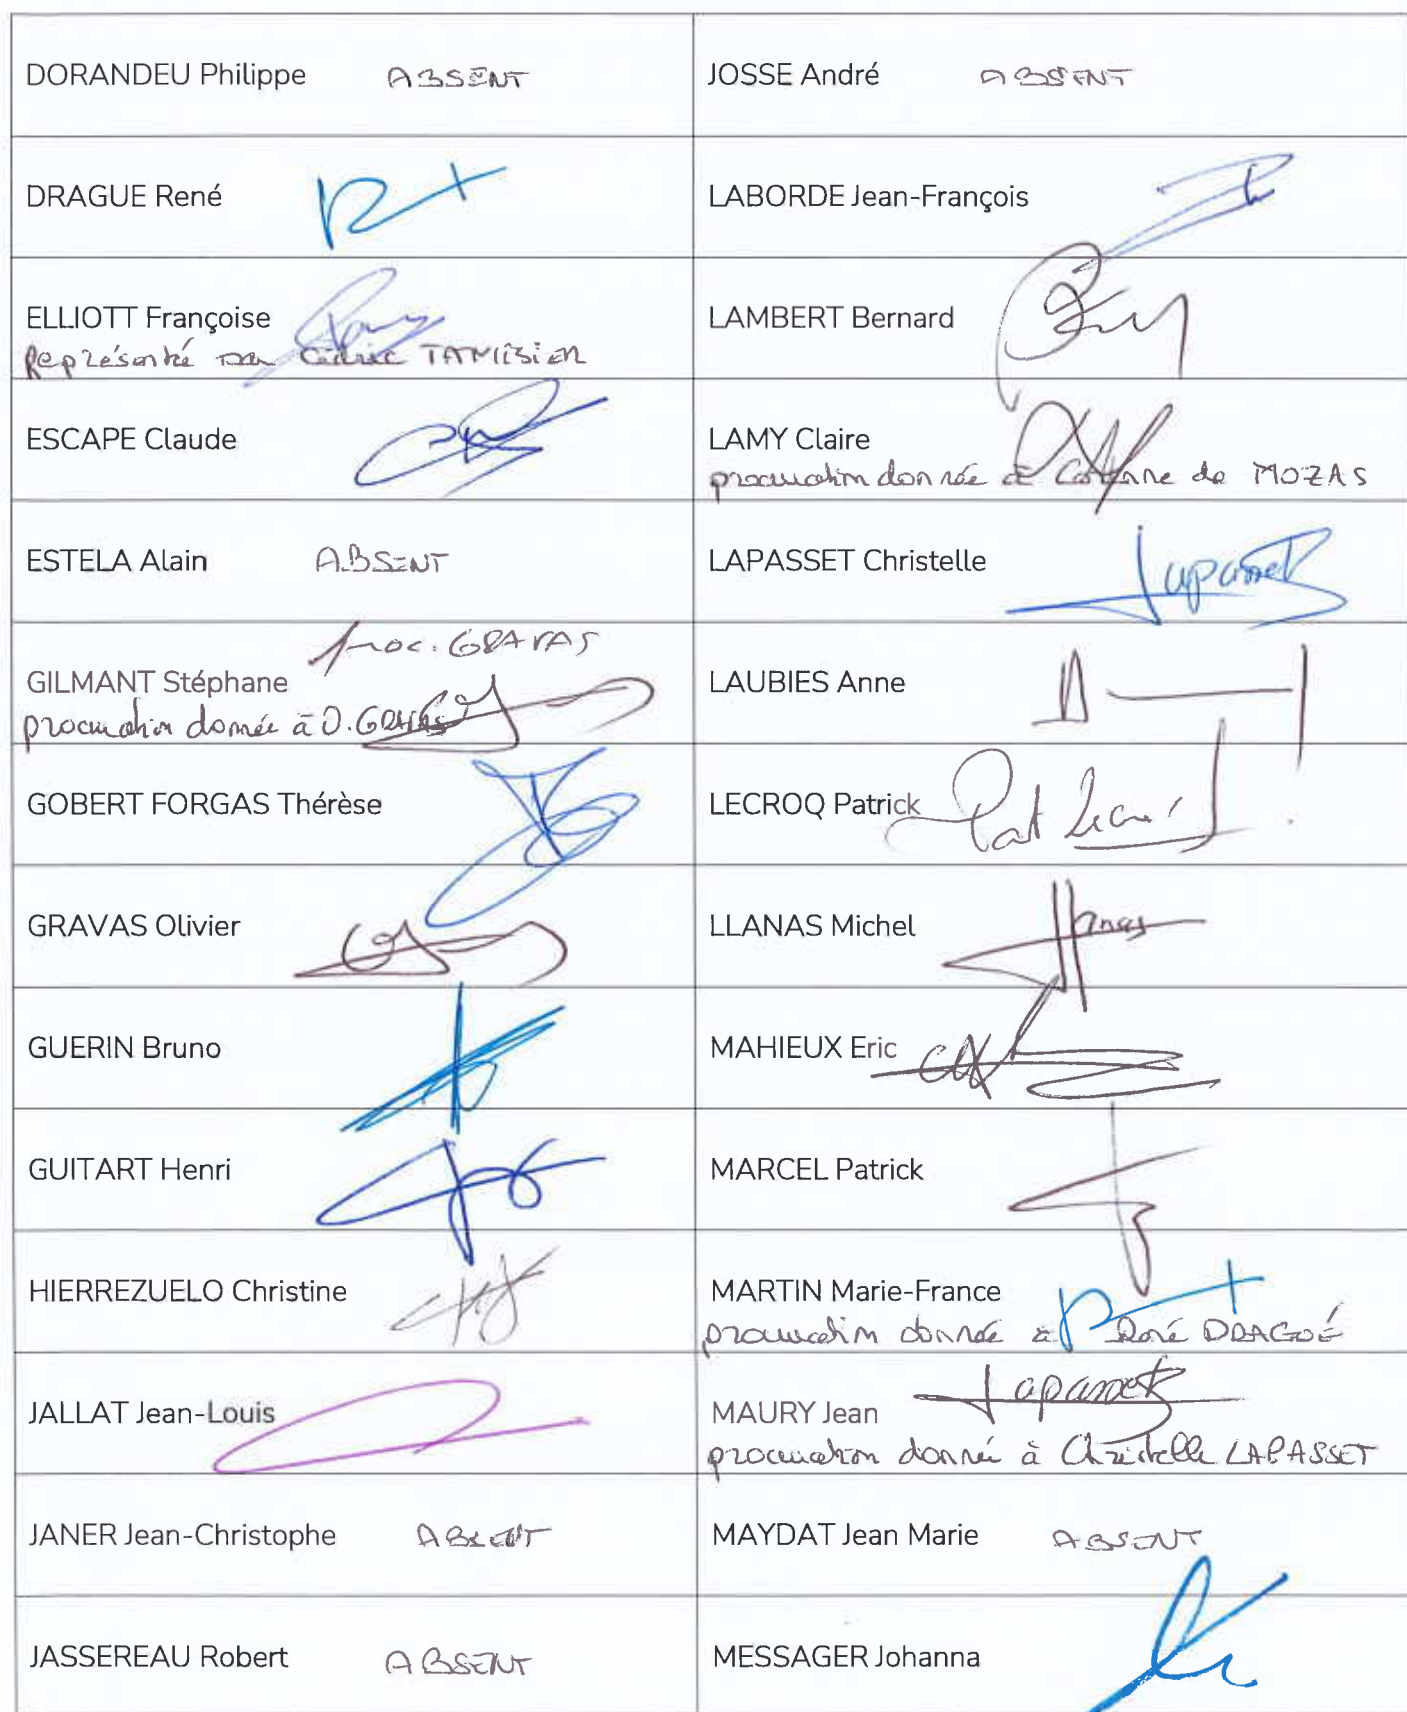 DORANDEU Philippe ABSENT
JOSSE André ABSENT
DRAGUE René
LABORDE Jean-François
ELLIOTT Françoise
Représenté par Cédric TAMISIER
LAMBERT Bernard
ESCAPE Claude
LAMY Claire
procuration donnée à de MOZAS
ESTELA Alain ABSENT
LAPASSET Christelle Lapasset
Proc. GRAVAS
GILMANT Stéphane
procuration donnée à O. GRAVAS
LAUBIES Anne
GOBERT FORGAS Thérèse
LECROQ Patrick Pat
GRAVAS Olivier
LLANAS Michel Llanas
GUERIN Bruno
MAHIEUX Eric
GUITART Henri
MARCEL Patrick
HIERREZUELO Christine
MARTIN Marie-France
procuration donnée à René DRAGUÉ
JALLAT Jean-Louis
Lapasset
MAURY Jean
procuration donnée à Christelle LAPASSET
JANER Jean-Christophe ABSENT
MAYDAT Jean Marie ABSENT
JASSEREAU Robert ABSENT
MESSAGER Johanna